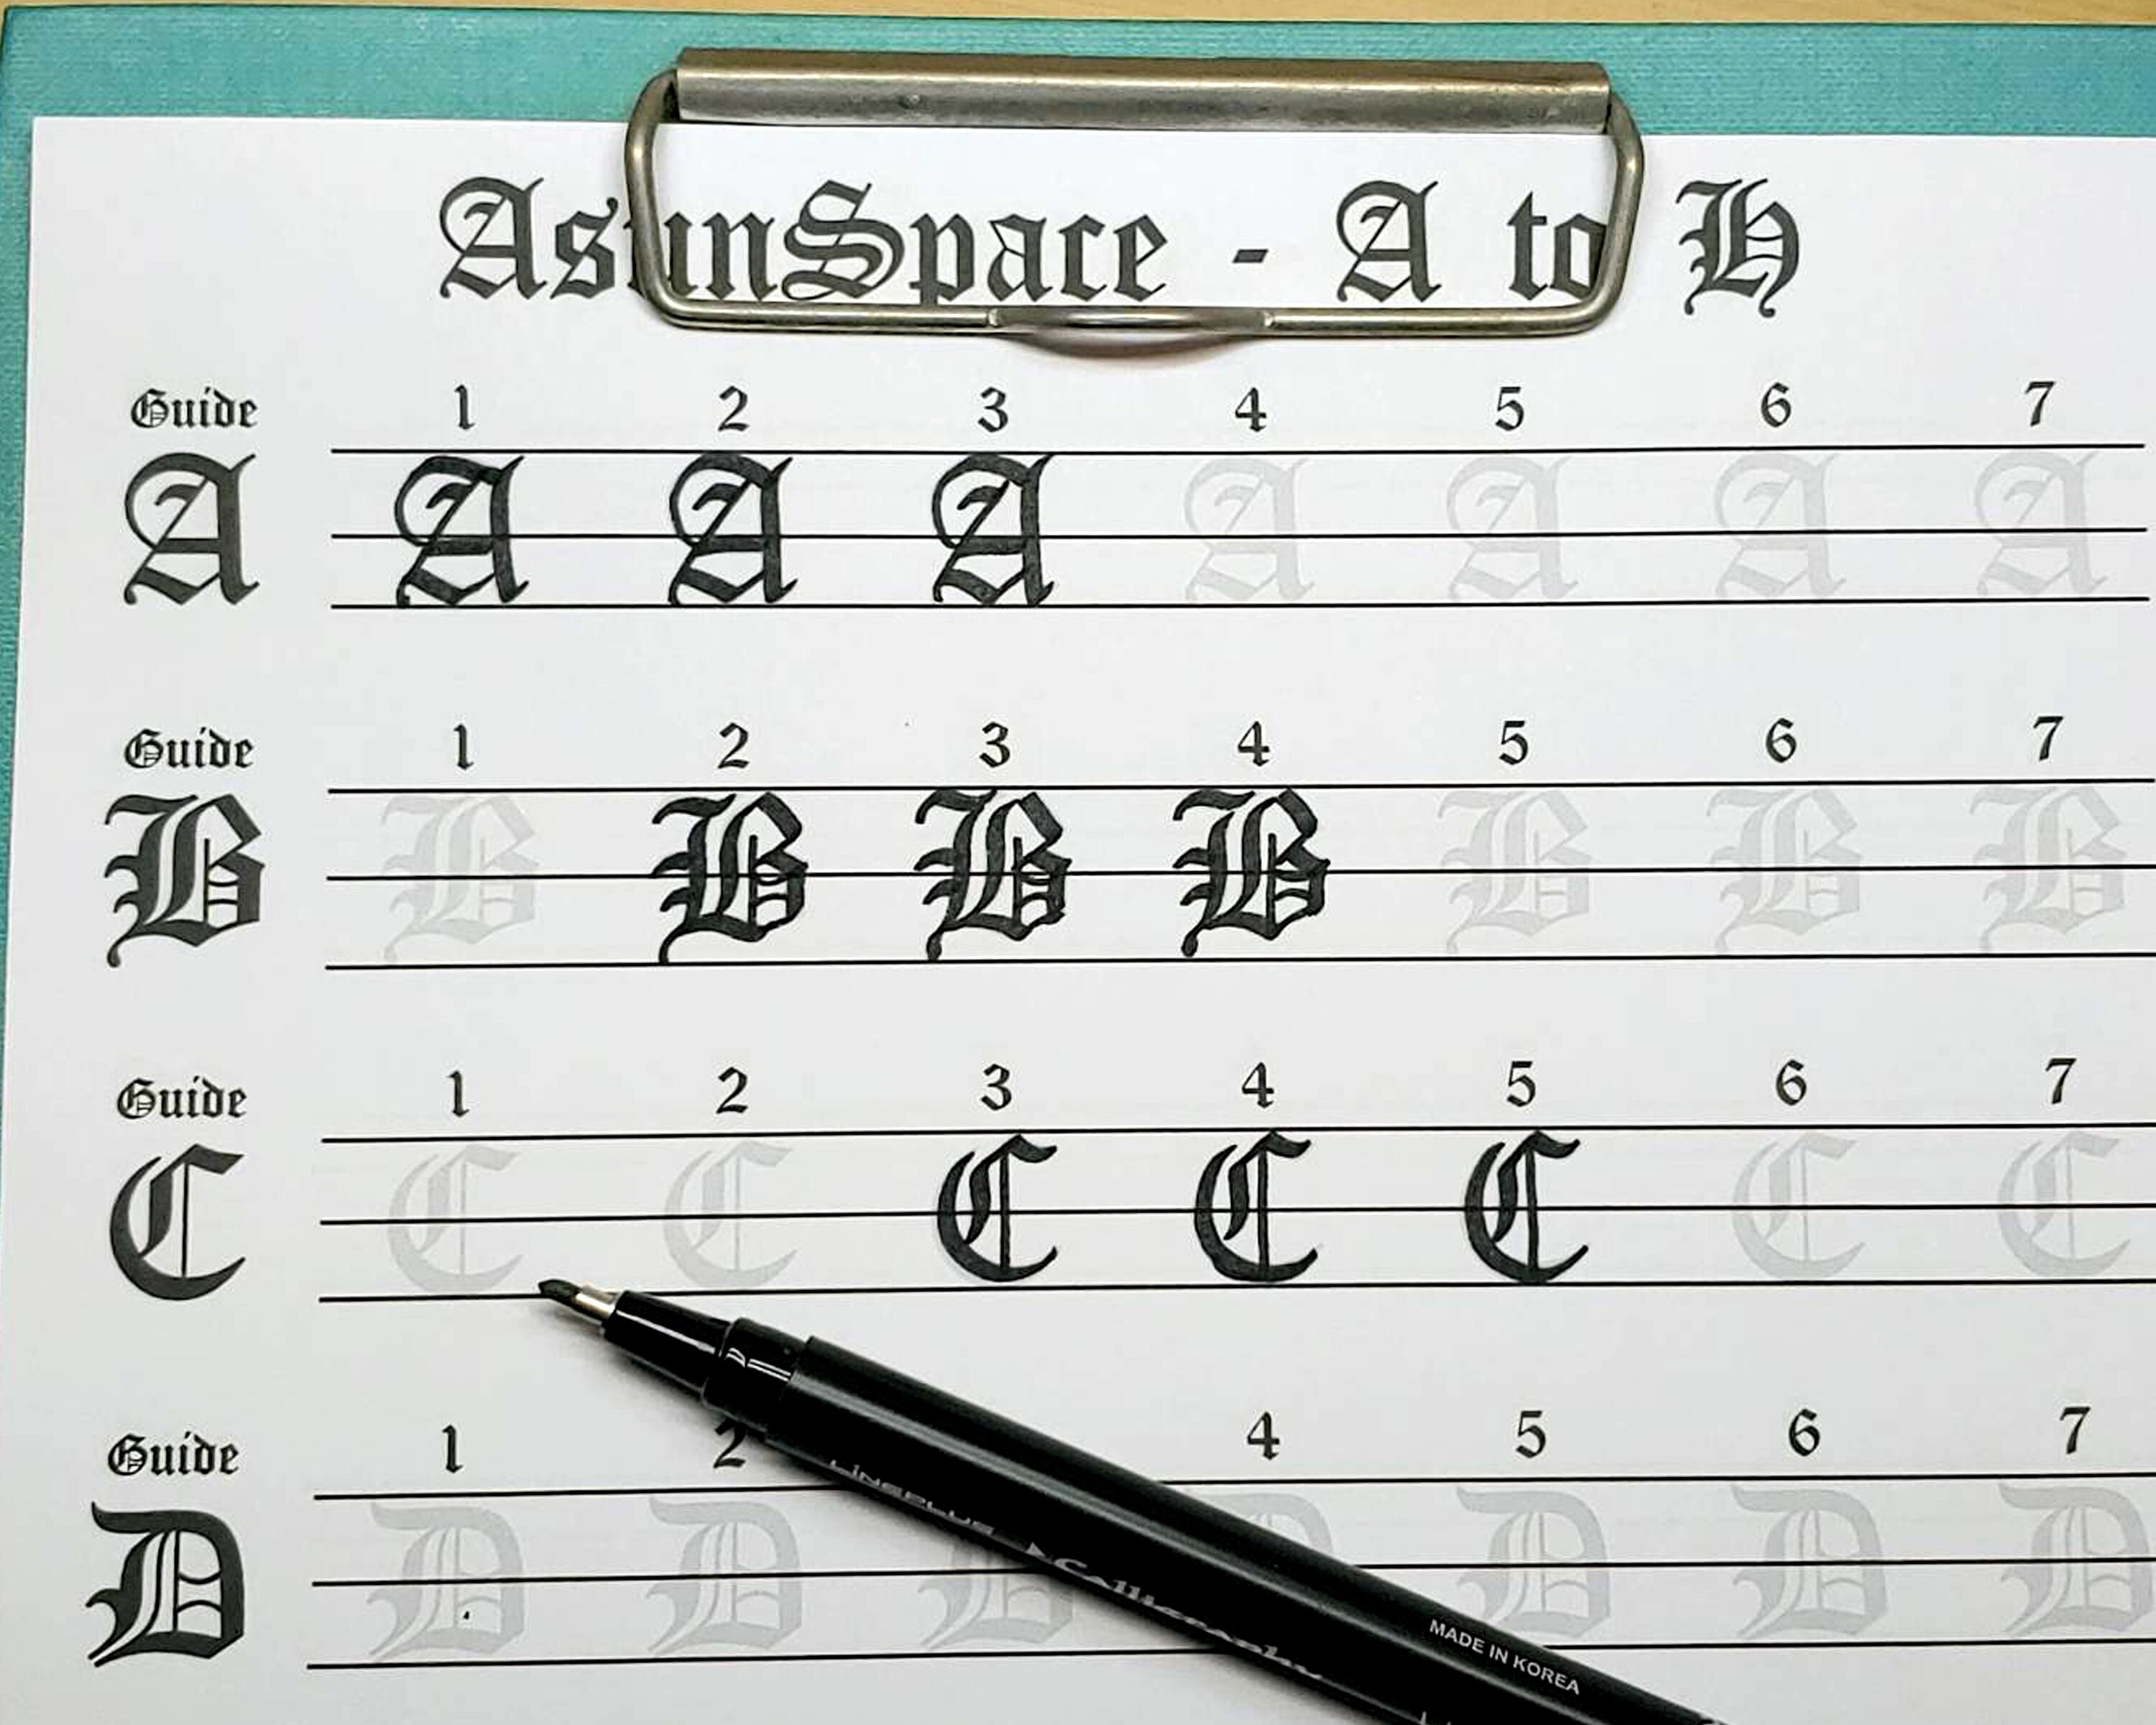 AsunSpace - A to H
Guide 1 2 3 4 5 6 7
A A A A A A A A
Guide 1 2 3 4 5 6 7
B B B B B B B B
Guide 1 2 3 4 5 6 7
C C C C C C C C
Guide 1 2 4 5 6 7
D D D D D D D D
LINEPLUS Calligraphy
MADE IN KOREA